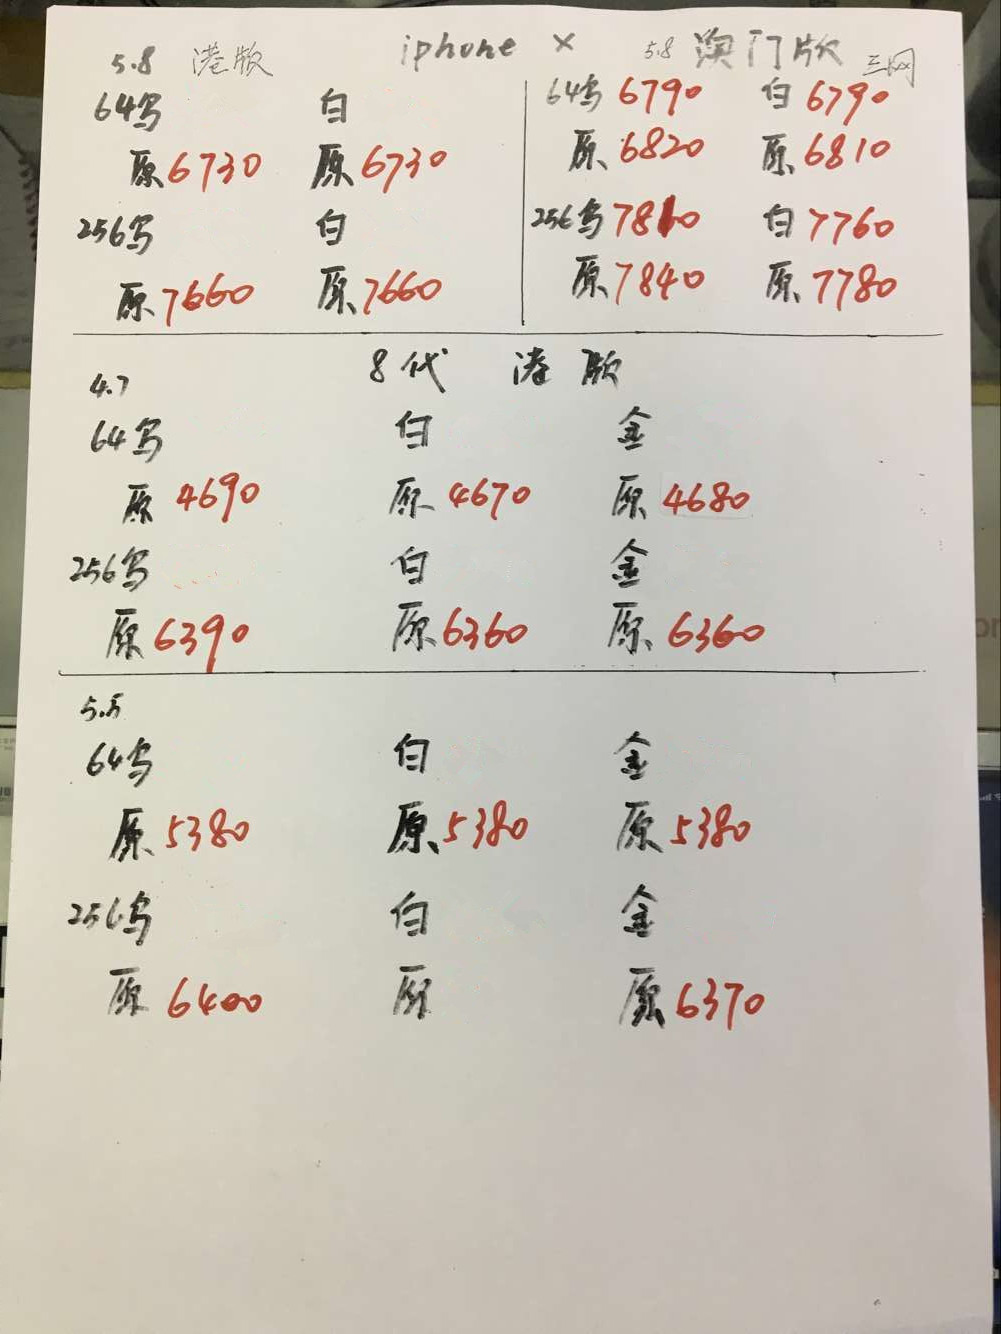 iphone X
5.8 港版
64乌 白
原6730 原6730
256乌 白
原7660 原7660
5.8 澳门版 三网
64乌 6790 白 6790
原 6820 原 6810
256乌 7810 白 7760
原 7840 原 7780
8代 港版
4.7
64乌 白 金
原 4690 原 4670 原 4680
256乌 白 金
原 6390 原 6360 原 6360
5.5
64乌 白 金
原 5380 原 5380 原 5380
256乌 白 金
原 6400 原 原 6370